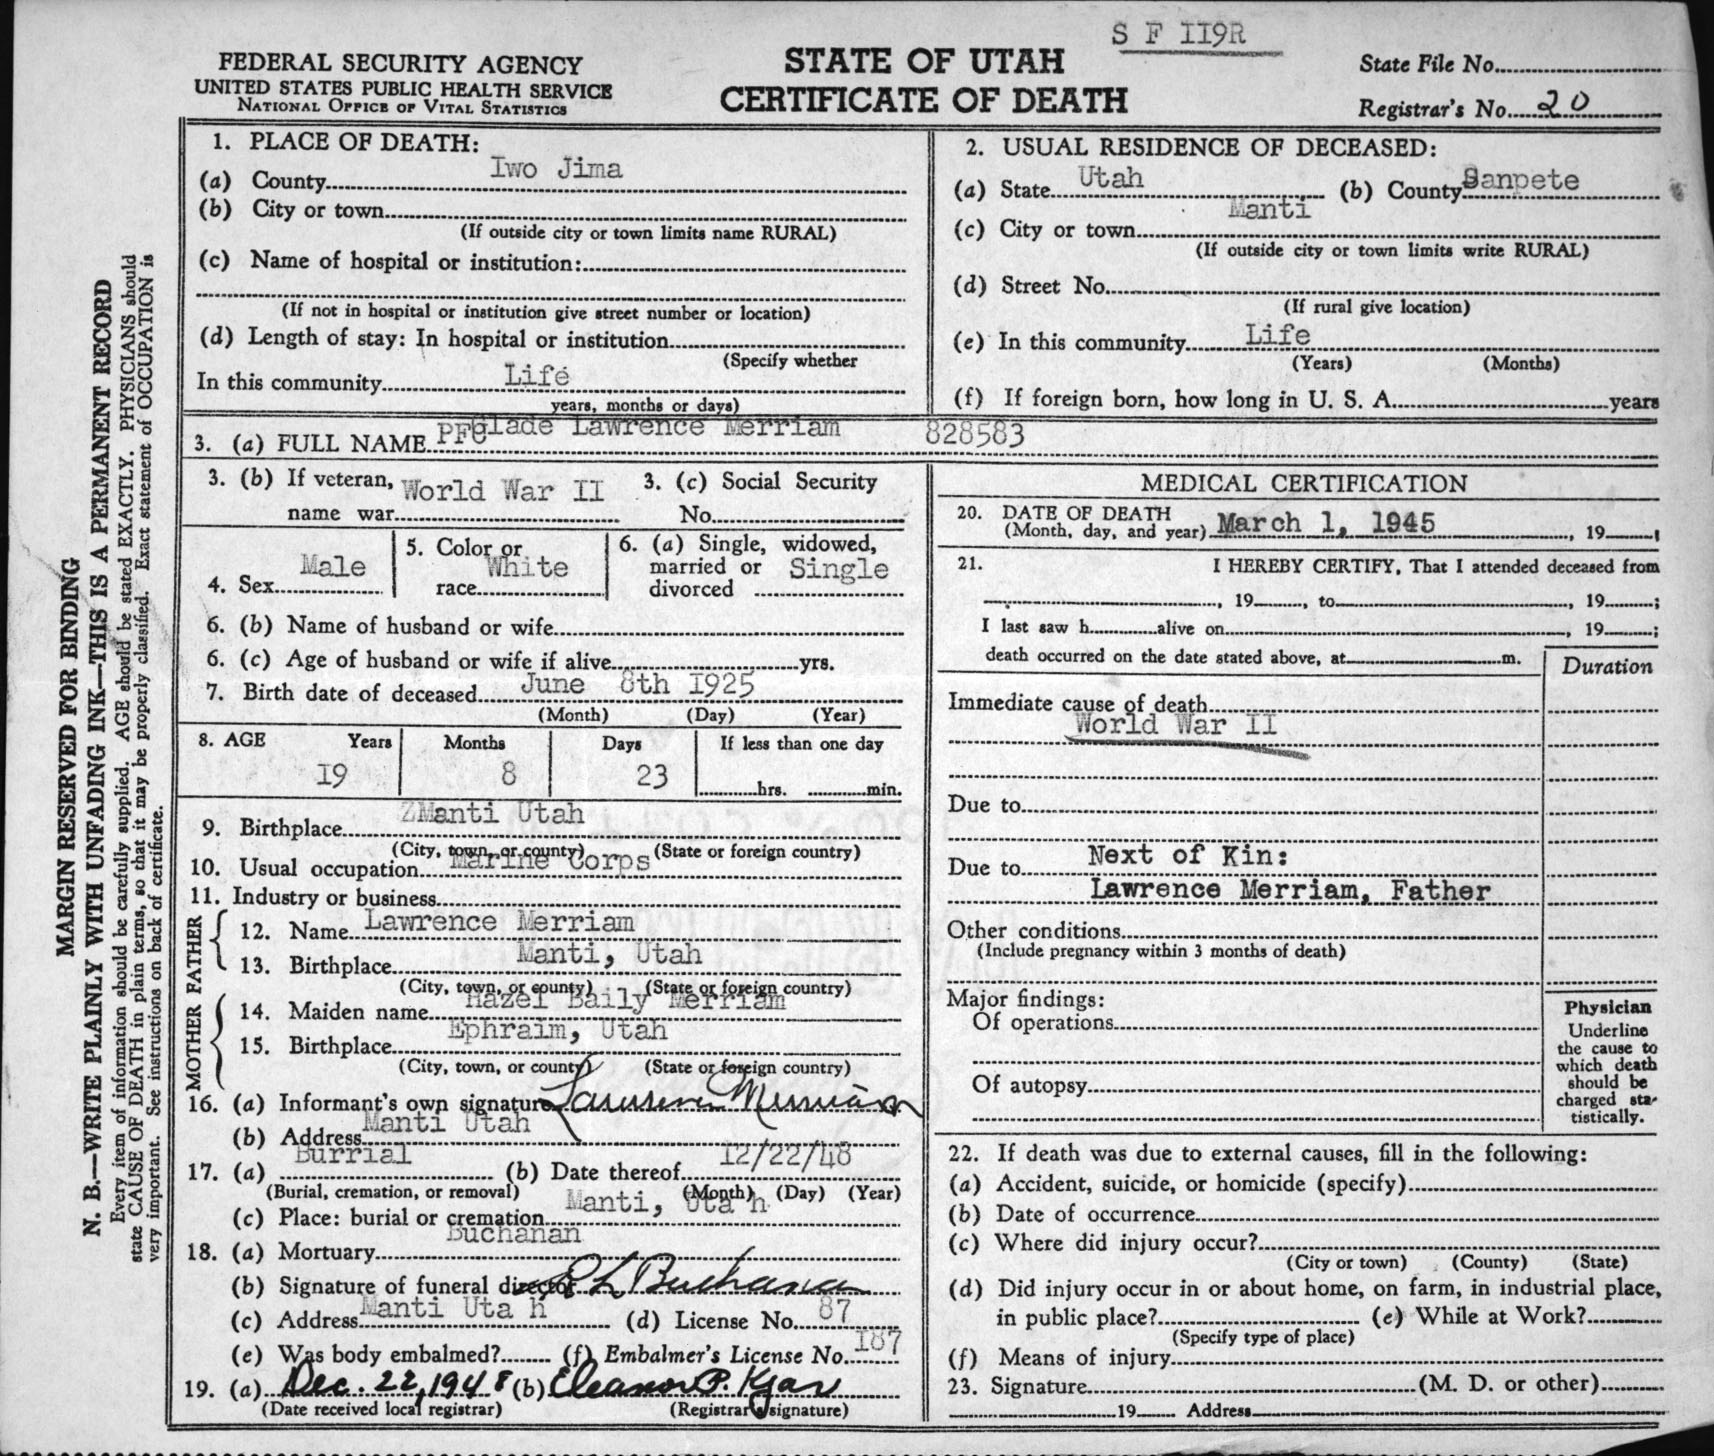 S F 119R
FEDERAL SECURITY AGENCY
UNITED STATES PUBLIC HEALTH SERVICE
NATIONAL OFFICE OF VITAL STATISTICS
STATE OF UTAH
CERTIFICATE OF DEATH
State File No.
Registrar's No. 20
MARGIN RESERVED FOR BINDING
N. B.—WRITE PLAINLY WITH UNFADING INK—THIS IS A PERMANENT RECORD
Every item of information should be carefully supplied. AGE should be stated EXACTLY. PHYSICIANS should
state CAUSE OF DEATH in plain terms, so that it may be properly classified. Exact statement of OCCUPATION is
very important. See instructions on back of certificate.
1. PLACE OF DEATH:
(a) County Iwo Jima
(b) City or town
(If outside city or town limits name RURAL)
(c) Name of hospital or institution:
(If not in hospital or institution give street number or location)
(d) Length of stay: In hospital or institution
(Specify whether
In this community Life
years, months or days)
2. USUAL RESIDENCE OF DECEASED:
(a) State Utah (b) County Sanpete
(c) City or town Manti
(If outside city or town limits write RURAL)
(d) Street No.
(If rural give location)
(e) In this community Life
(Years) (Months)
(f) If foreign born, how long in U. S. A. years
3. (a) FULL NAME PFC Glade Lawrence Merriam 828583
3. (b) If veteran, name war World War II
3. (c) Social Security No.
4. Sex Male
5. Color or race White
6. (a) Single, widowed, married or divorced Single
6. (b) Name of husband or wife
6. (c) Age of husband or wife if alive yrs.
7. Birth date of deceased June 8th 1925
(Month) (Day) (Year)
8. AGE Years Months Days If less than one day
19 8 23 hrs. min.
9. Birthplace ZManti Utah
(City, town, or county) (State or foreign country)
10. Usual occupation Marine Corps
11. Industry or business
FATHER
12. Name Lawrence Merriam
13. Birthplace Manti, Utah
(City, town, or county) (State or foreign country)
MOTHER
14. Maiden name Hazel Baily Merriam
15. Birthplace Ephraim, Utah
(City, town, or county) (State or foreign country)
16. (a) Informant's own signature Lawrence Merriam
(b) Address Manti Utah
17. (a) Burrial (b) Date thereof 12/22/48
(Burial, cremation, or removal) (Month) (Day) (Year)
(c) Place: burial or cremation Manti, Uta h
18. (a) Mortuary Buchanan
(b) Signature of funeral director R L Buchanan
(c) Address Manti Uta h (d) License No. 87
(e) Was body embalmed? (f) Embalmer's License No. 187
19. (a) Dec. 22, 1948 (b) Eleanor P. Kjar
(Date received local registrar) (Registrar's signature)
MEDICAL CERTIFICATION
20. DATE OF DEATH
(Month, day, and year) March 1, 1945, 19
21. I HEREBY CERTIFY, That I attended deceased from
, 19 , to , 19 ;
I last saw h alive on , 19 ;
death occurred on the date stated above, at m.
Duration
Immediate cause of death
World War II
Due to
Due to Next of Kin:
Lawrence Merriam, Father
Other conditions
(Include pregnancy within 3 months of death)
Major findings:
Of operations
Of autopsy
Physician
Underline
the cause to
which death
should be
charged sta-
tistically.
22. If death was due to external causes, fill in the following:
(a) Accident, suicide, or homicide (specify)
(b) Date of occurrence
(c) Where did injury occur?
(City or town) (County) (State)
(d) Did injury occur in or about home, on farm, in industrial place,
in public place? (e) While at Work?
(Specify type of place)
(f) Means of injury
23. Signature (M. D. or other)
19 Address